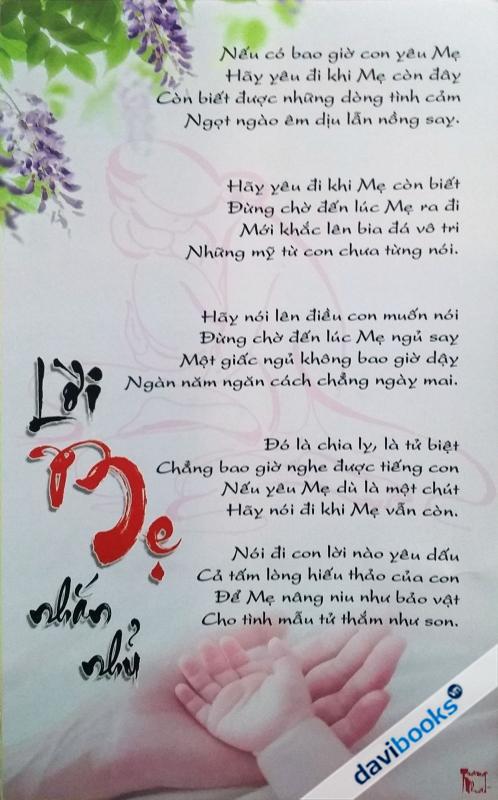 Nếu có bao giờ con yêu Mẹ
Hãy yêu đi khi Mẹ còn đây
Còn biết được những dòng tình cảm
Ngọt ngào êm dịu lẫn nồng say.
Hãy yêu đi khi Mẹ còn biết
Đừng chờ đến lúc Mẹ ra đi
Mới khắc lên bia đá vô tri
Những mỹ từ con chưa từng nói.
Hãy nói lên điều con muốn nói
Đừng chờ đến lúc Mẹ ngủ say
Một giấc ngủ không bao giờ dậy
Ngàn năm ngăn cách chẳng ngày mai.
Đó là chia ly, là tử biệt
Chẳng bao giờ nghe được tiếng con
Nếu yêu Mẹ dù là một chút
Hãy nói đi khi Mẹ vẫn còn.
Nói đi con lời nào yêu dấu
Cả tấm lòng hiếu thảo của con
Để Mẹ nâng niu như bảo vật
Cho tình mẫu tử thắm như son.
Lời
Mẹ
nhắn
nhủ
davibooks.vn